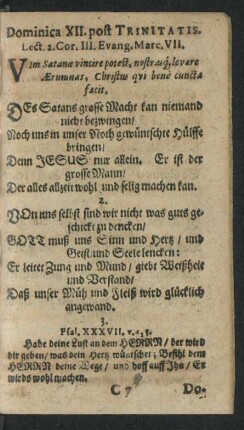 Dominica XII. post TRINITATIS.
Lect. 2. Cor. III. Evang. Marc. VII.
Vim Satanæ vincere potest, nostrasq́; levare
Ærumnas, Christus qvi bene cuncta
facit.
DEs Satans grosse Macht kan niemand
nicht bezwingen/
Noch uns in unser Noth gewünschte Hülffe
bringen/
Denn JESUS nur allein. Er ist der
grosse Mann/
Der alles allzeit wohl und selig machen kan.
2.
VOn uns selbst sind wir nicht was guts ge-
schickt zu dencken/
GOTT muß uns Sinn und Hertz/ und
Geist und Seele lencken:
Er leitet Zung und Mund/ giebt Weißheit
und Verstand/
Daß unser Müh und Fleiß wird glücklich
angewand.
3.
Psal. XXXVII. v. 4. 5.
Habe deine Lust an dem HERRN/ der wird
dir geben/ was dein Hertz wüntschet; Befihl dem
HERRN deine Wege/ und hoff auff Ihn/ Er
wirds wohl machen.
C 7 Do-